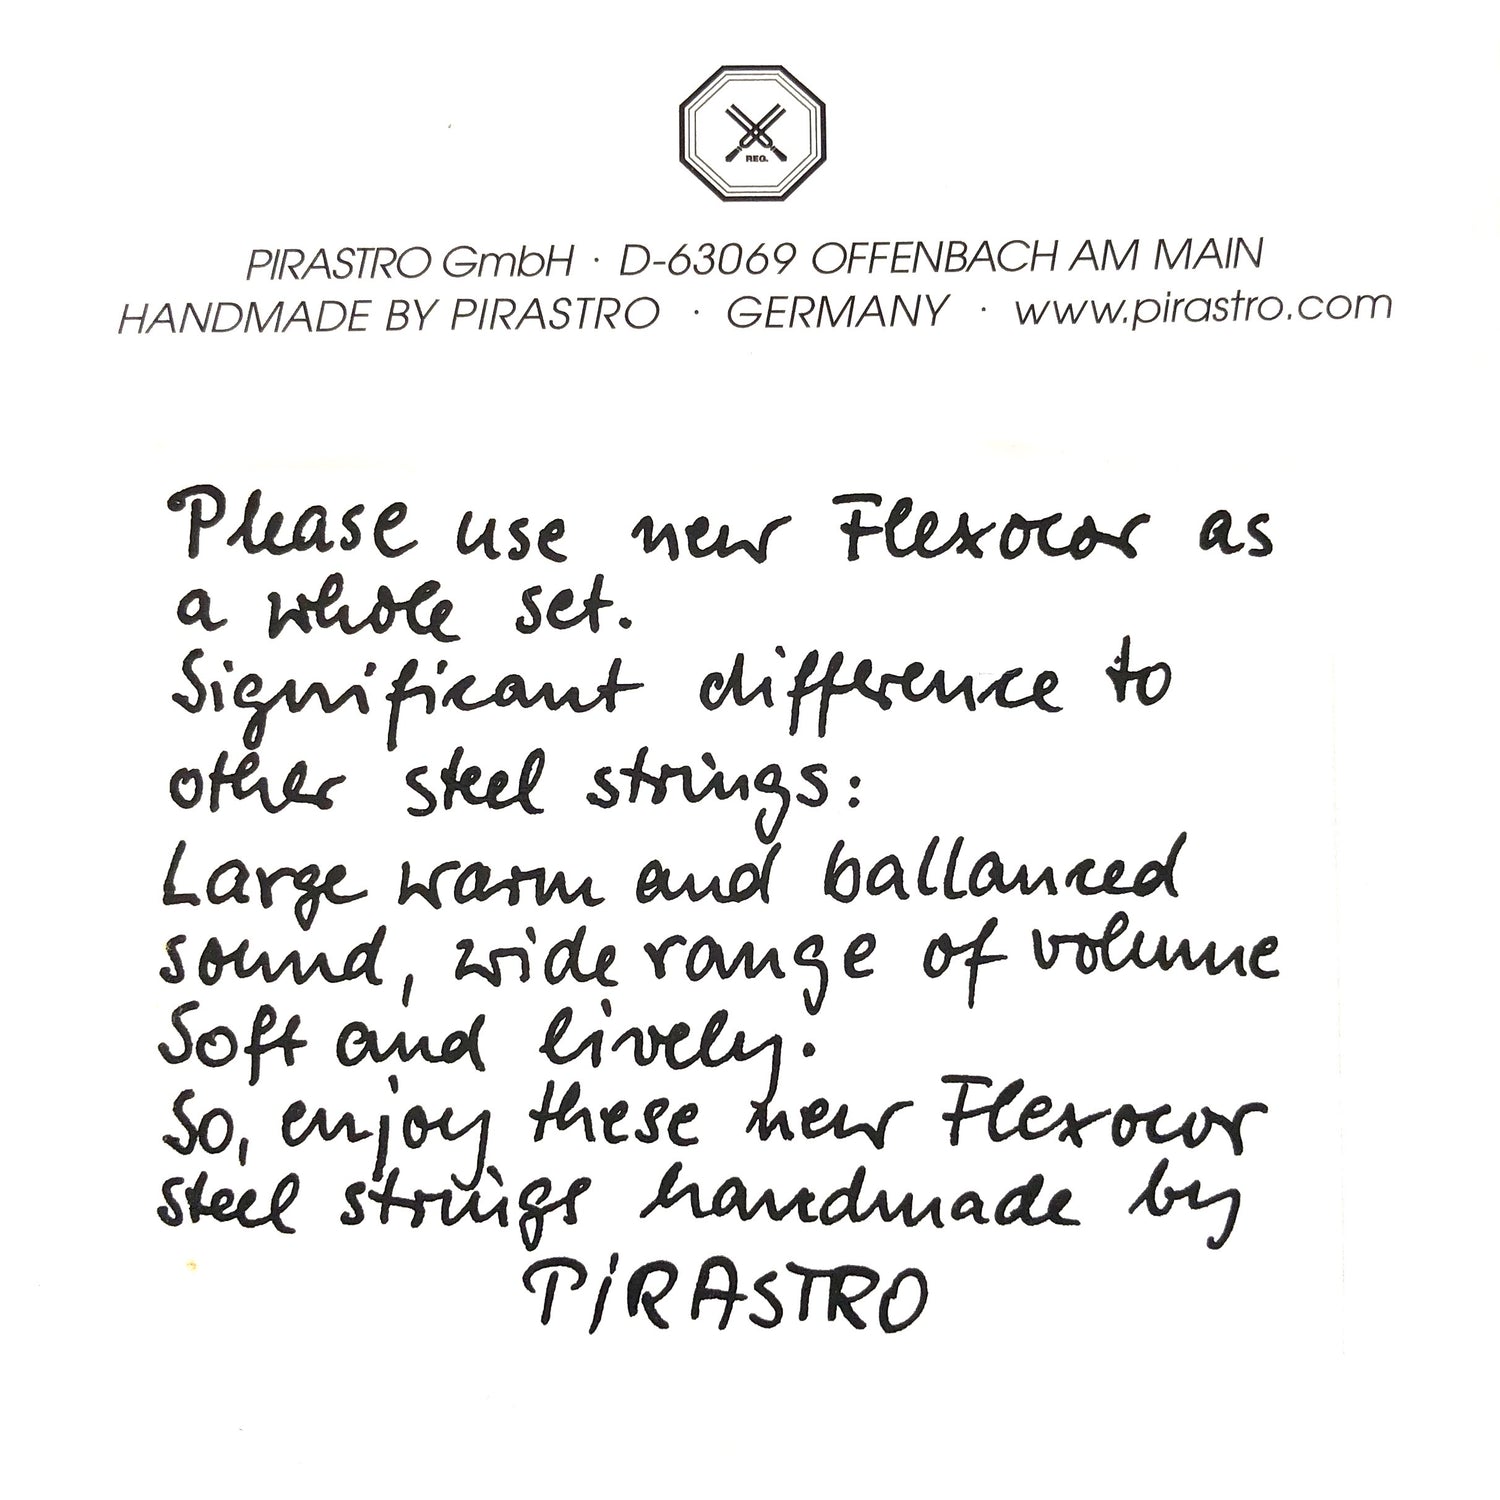 REG.
PIRASTRO GmbH · D-63069 OFFENBACH AM MAIN
HANDMADE BY PIRASTRO · GERMANY · www.pirastro.com
Please use new Flexocor as
a whole set.
Significant difference to
other steel strings:
Large warm and ballanced
sound, wide range of volume
Soft and lively.
So, enjoy these new Flexocor
steel strings handmade by
PiRASTRO